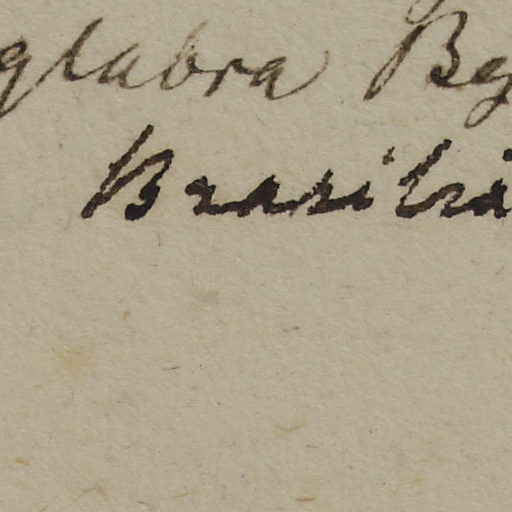 glabra Bg
Brasilia